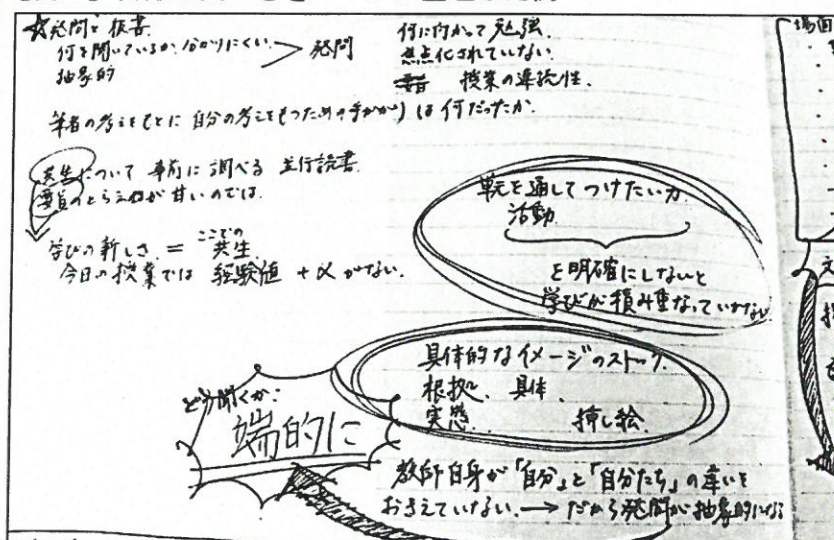 ☆発問と板書
何を聞いているか分かりにくい
抽象的
発問
何に向かって勉強
焦点化されていない
授業の連続性
筆者の考えをもとに自分の考えをもつための手がかりは何だったか。
共生について 事前に調べる 並行読書
のとらえ方が甘いのでは
学びの新しさ = ここでの共生
今日の授業では 経験値 + α がない。
単元を通してつけたい力
活動
を明確にしないと
学びが積み重なっていかない
具体的なイメージのストック
根拠、具体
実態 挿し絵
どう聞くか:
端的に
教師自身が「自分」と「自分たち」の違いを
おさえていない。→ だから発問が抽象的になる
場面